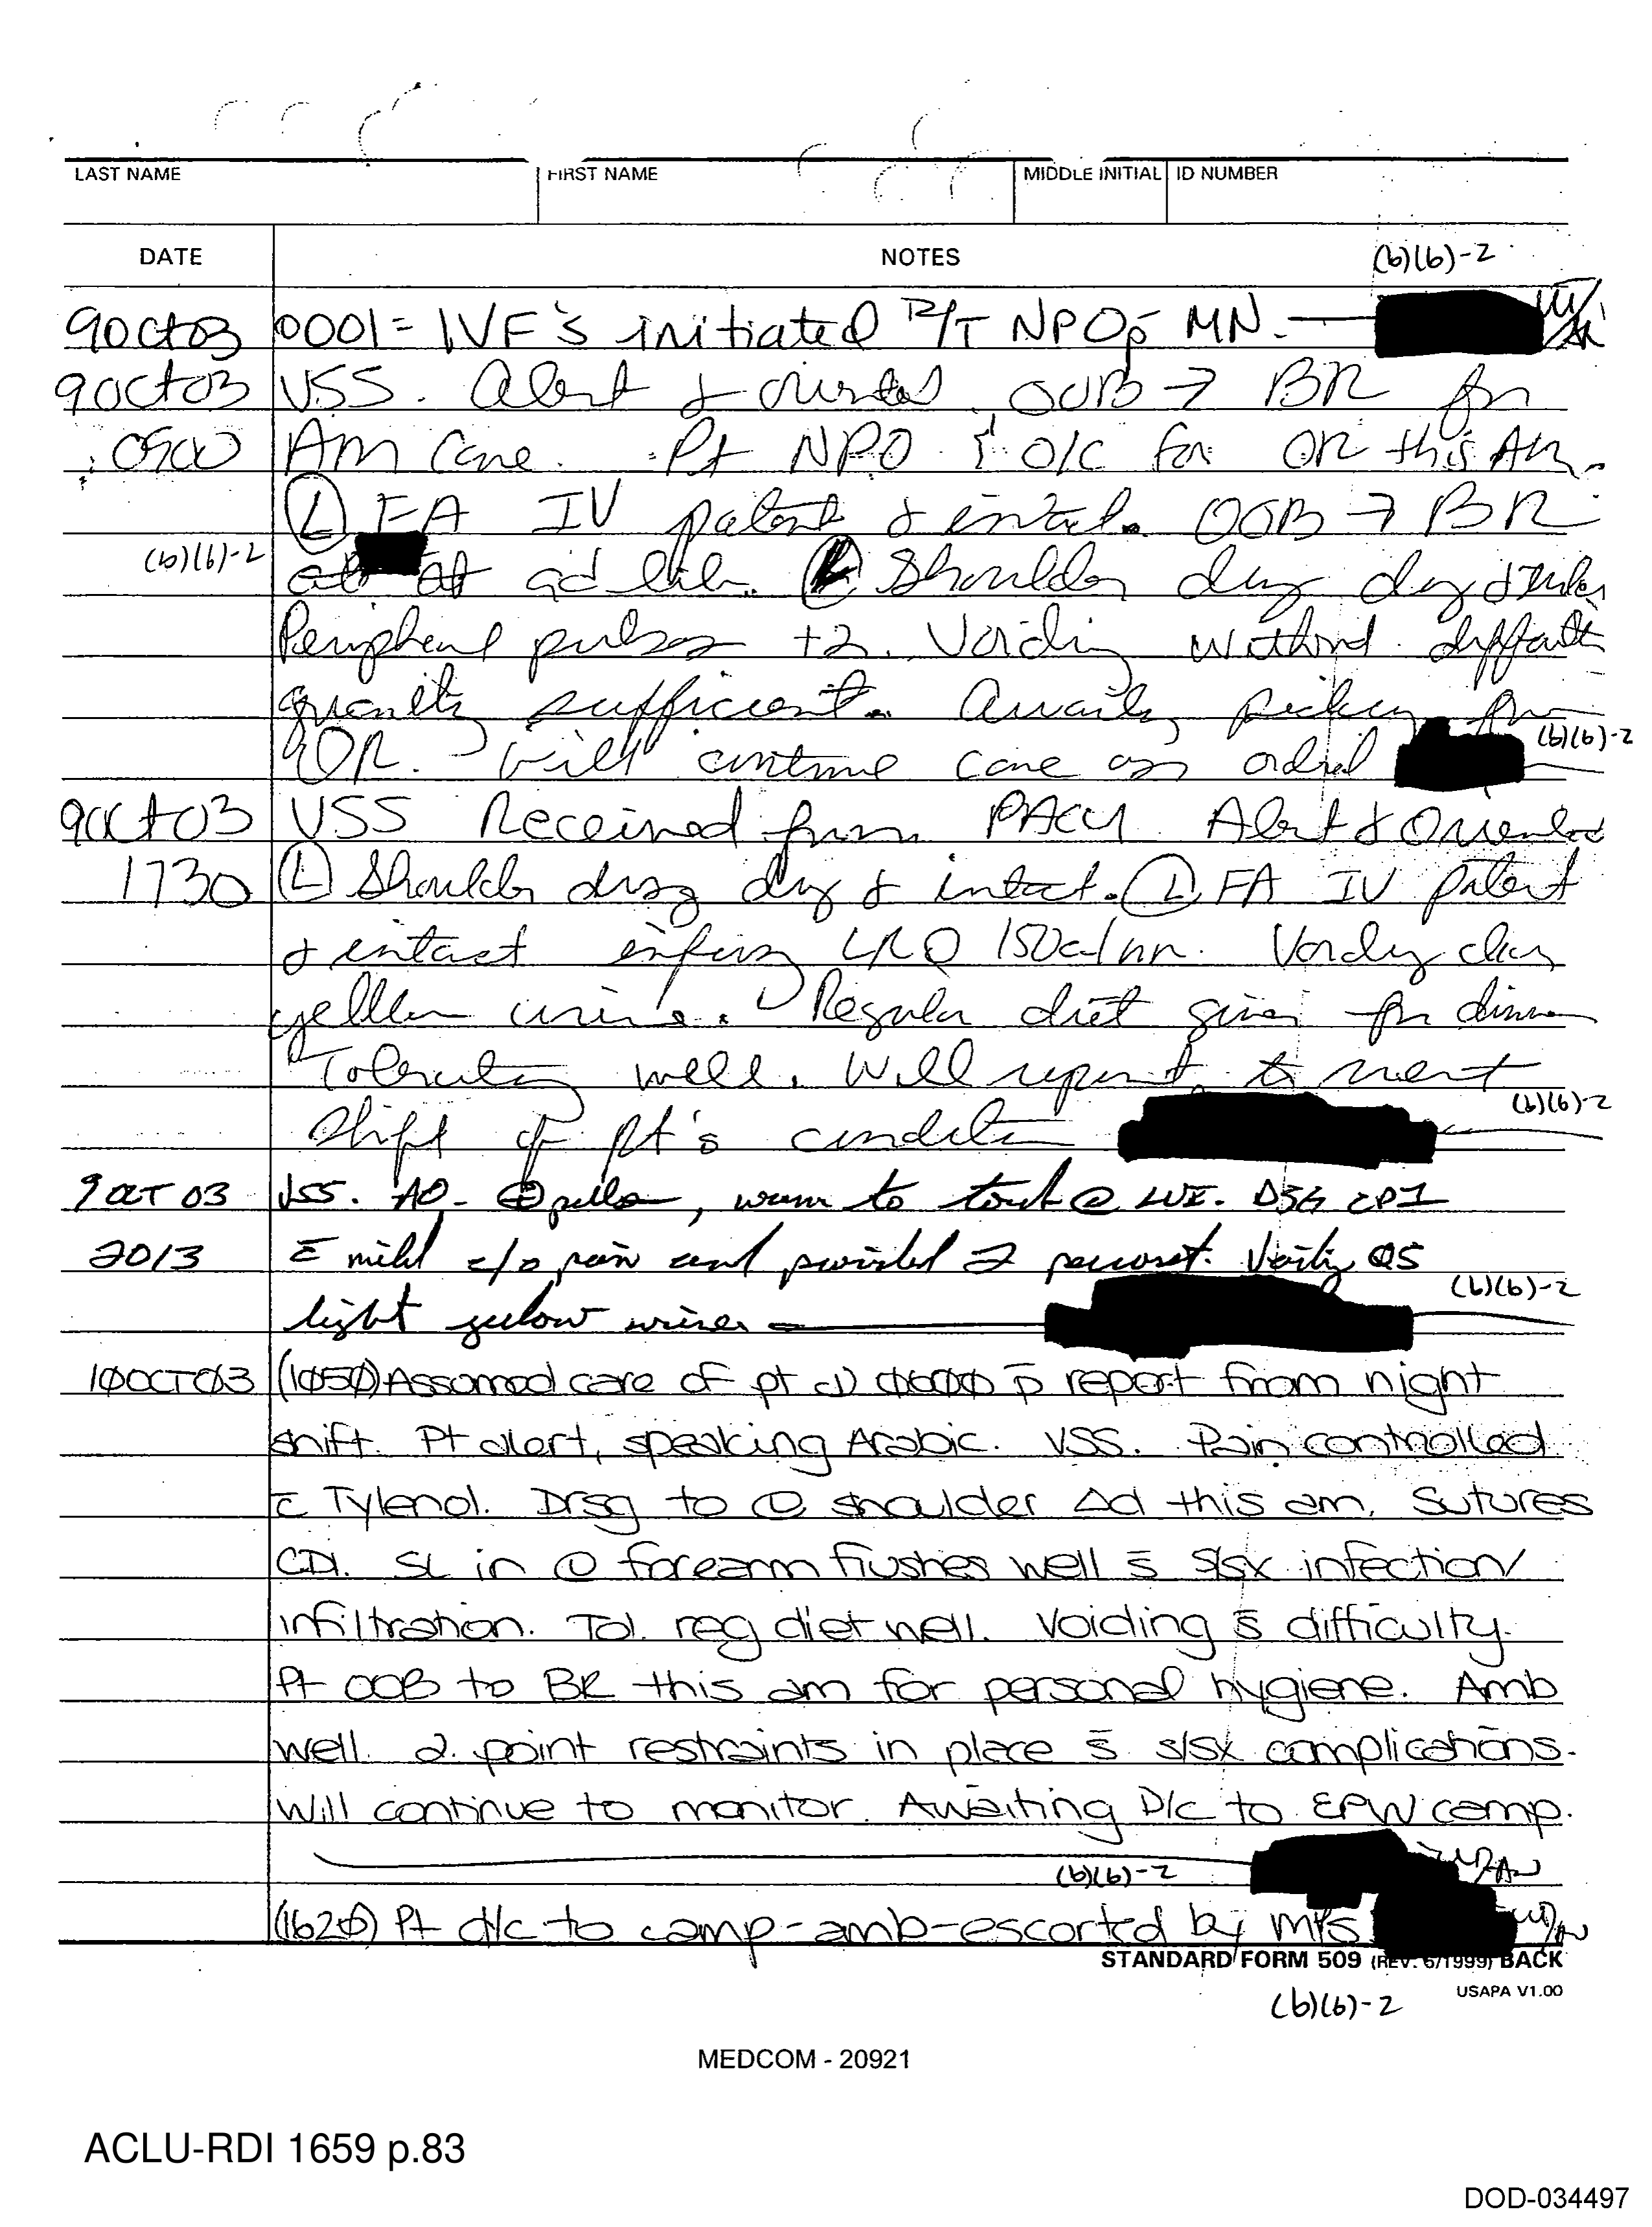 LAST NAME FIRST NAME MIDDLE INITIAL ID NUMBER
DATE NOTES (b)(6)-2
9Oct03 0001= IVF's initiated R/T NPO p̄ MN.
9Oct03 VSS. Alert & oriented OOB → BR for
0900 AM Care. Pt NPO o/c for OR this AM.
(L) FA IV patent & intact. OOB → BR
(b)(6)-2 ad lib. Shoulder dsg dry & intact
Peripheral pulses +2. Voiding without difficulty
quantity sufficient. Awaiting pickup for
OR. Will continue care as ordered (b)(6)-2
9Oct03 VSS Received from PACU Alert & Oriented
1730 (L) Shoulder drsg dry & intact. (L) FA IV patent
& intact infusing LR @ 150cc/hr. Voiding clear
yellow urine. Regular diet given for dinner
Tolerating well. Will report to next
shift of pt's condition (b)(6)-2
9 OCT 03 VSS. AO. , warm to touch @ LUE. DSG CDI
2013 c̄ mild c/o pain and provided 2 percocet. Voiding QS
light yellow urine (b)(6)-2
10OCT03 (1050) Assumed care of pt @ 0600 p̄ report from night
shift. Pt alert, speaking Arabic. VSS. Pain controlled
c̄ Tylenol. Drsg to (L) shoulder Δd this am. Sutures
CDI. SL in (L) forearm flushes well s̄ s/sx infection/
infiltration. Tol. reg diet well. Voiding s̄ difficulty.
Pt OOB to BR this am for personal hygiene. Amb
well. 2. point restraints in place s̄ s/sx complications.
Will continue to monitor. Awaiting D/c to EPW camp.
(b)(6)-2
(1620) Pt d/c to camp-amb-escorted by MPs
STANDARD FORM 509 (REV. 5/1999) BACK
USAPA V1.00
(b)(6)-2
MEDCOM - 20921
ACLU-RDI 1659 p.83
DOD-034497